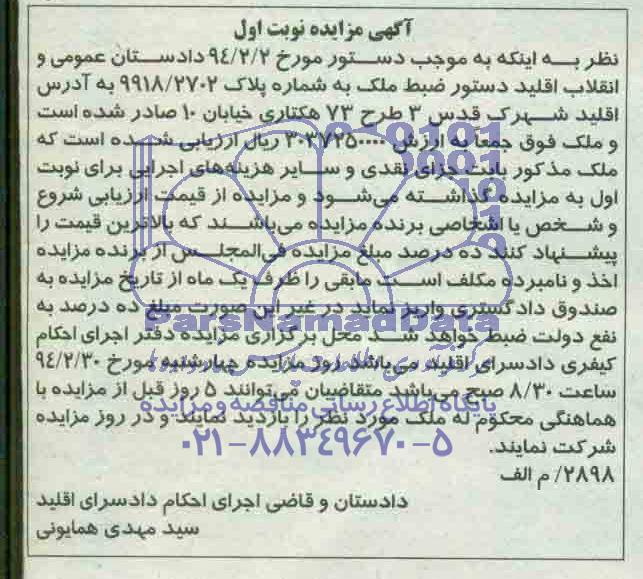 آگهی مزایده نوبت اول
نظر به اینکه به موجب دستور مورخ ۹۴/۲/۲ دادستان عمومی و
انقلاب اقلید دستور ضبط ملک به شماره پلاک ۹۹۱۸/۲۷۰۲ به آدرس
اقلید شهرک قدس ۳ طرح ۷۳ هکتاری خیابان ۱۰ صادر شده است
و ملک فوق جمعا به ارزش ۳۰۳۷۲۵۰۰۰۰ ریال ارزیابی شده است که
ملک مذکور بابت جزای نقدی و سایر هزینه‌های اجرایی برای نوبت
اول به مزایده گذاشته می‌شود و مزایده از قیمت ارزیابی شروع
و شخص یا اشخاصی برنده مزایده می‌باشند که بالاترین قیمت را
پیشنهاد کنند ده درصد مبلغ مزایده فی‌المجلس از برنده مزایده
اخذ و نامبرده مکلف است مابقی را ظرف یک ماه از تاریخ مزایده به
صندوق دادگستری واریز نماید در غیر این صورت مبلغ ده درصد به
نفع دولت ضبط خواهد شد محل برگزاری مزایده دفتر اجرای احکام
کیفری دادسرای اقلید می‌باشد روز مزایده چهارشنبه مورخ ۹۴/۲/۳۰
ساعت ۸/۳۰ صبح می‌باشد متقاضیان می‌توانند ۵ روز قبل از مزایده با
هماهنگی محکوم له ملک مورد نظر را بازدید نمایند و در روز مزایده
شرکت نمایند.
۲۸۹۸/ م الف
دادستان و قاضی اجرای احکام دادسرای اقلید
سید مهدی همایونی
ParsNamadData
پایگاه اطلاع رسانی مناقصه و مزایده
۰۲۱-۸۸۳۴۹۶۷۰-۵